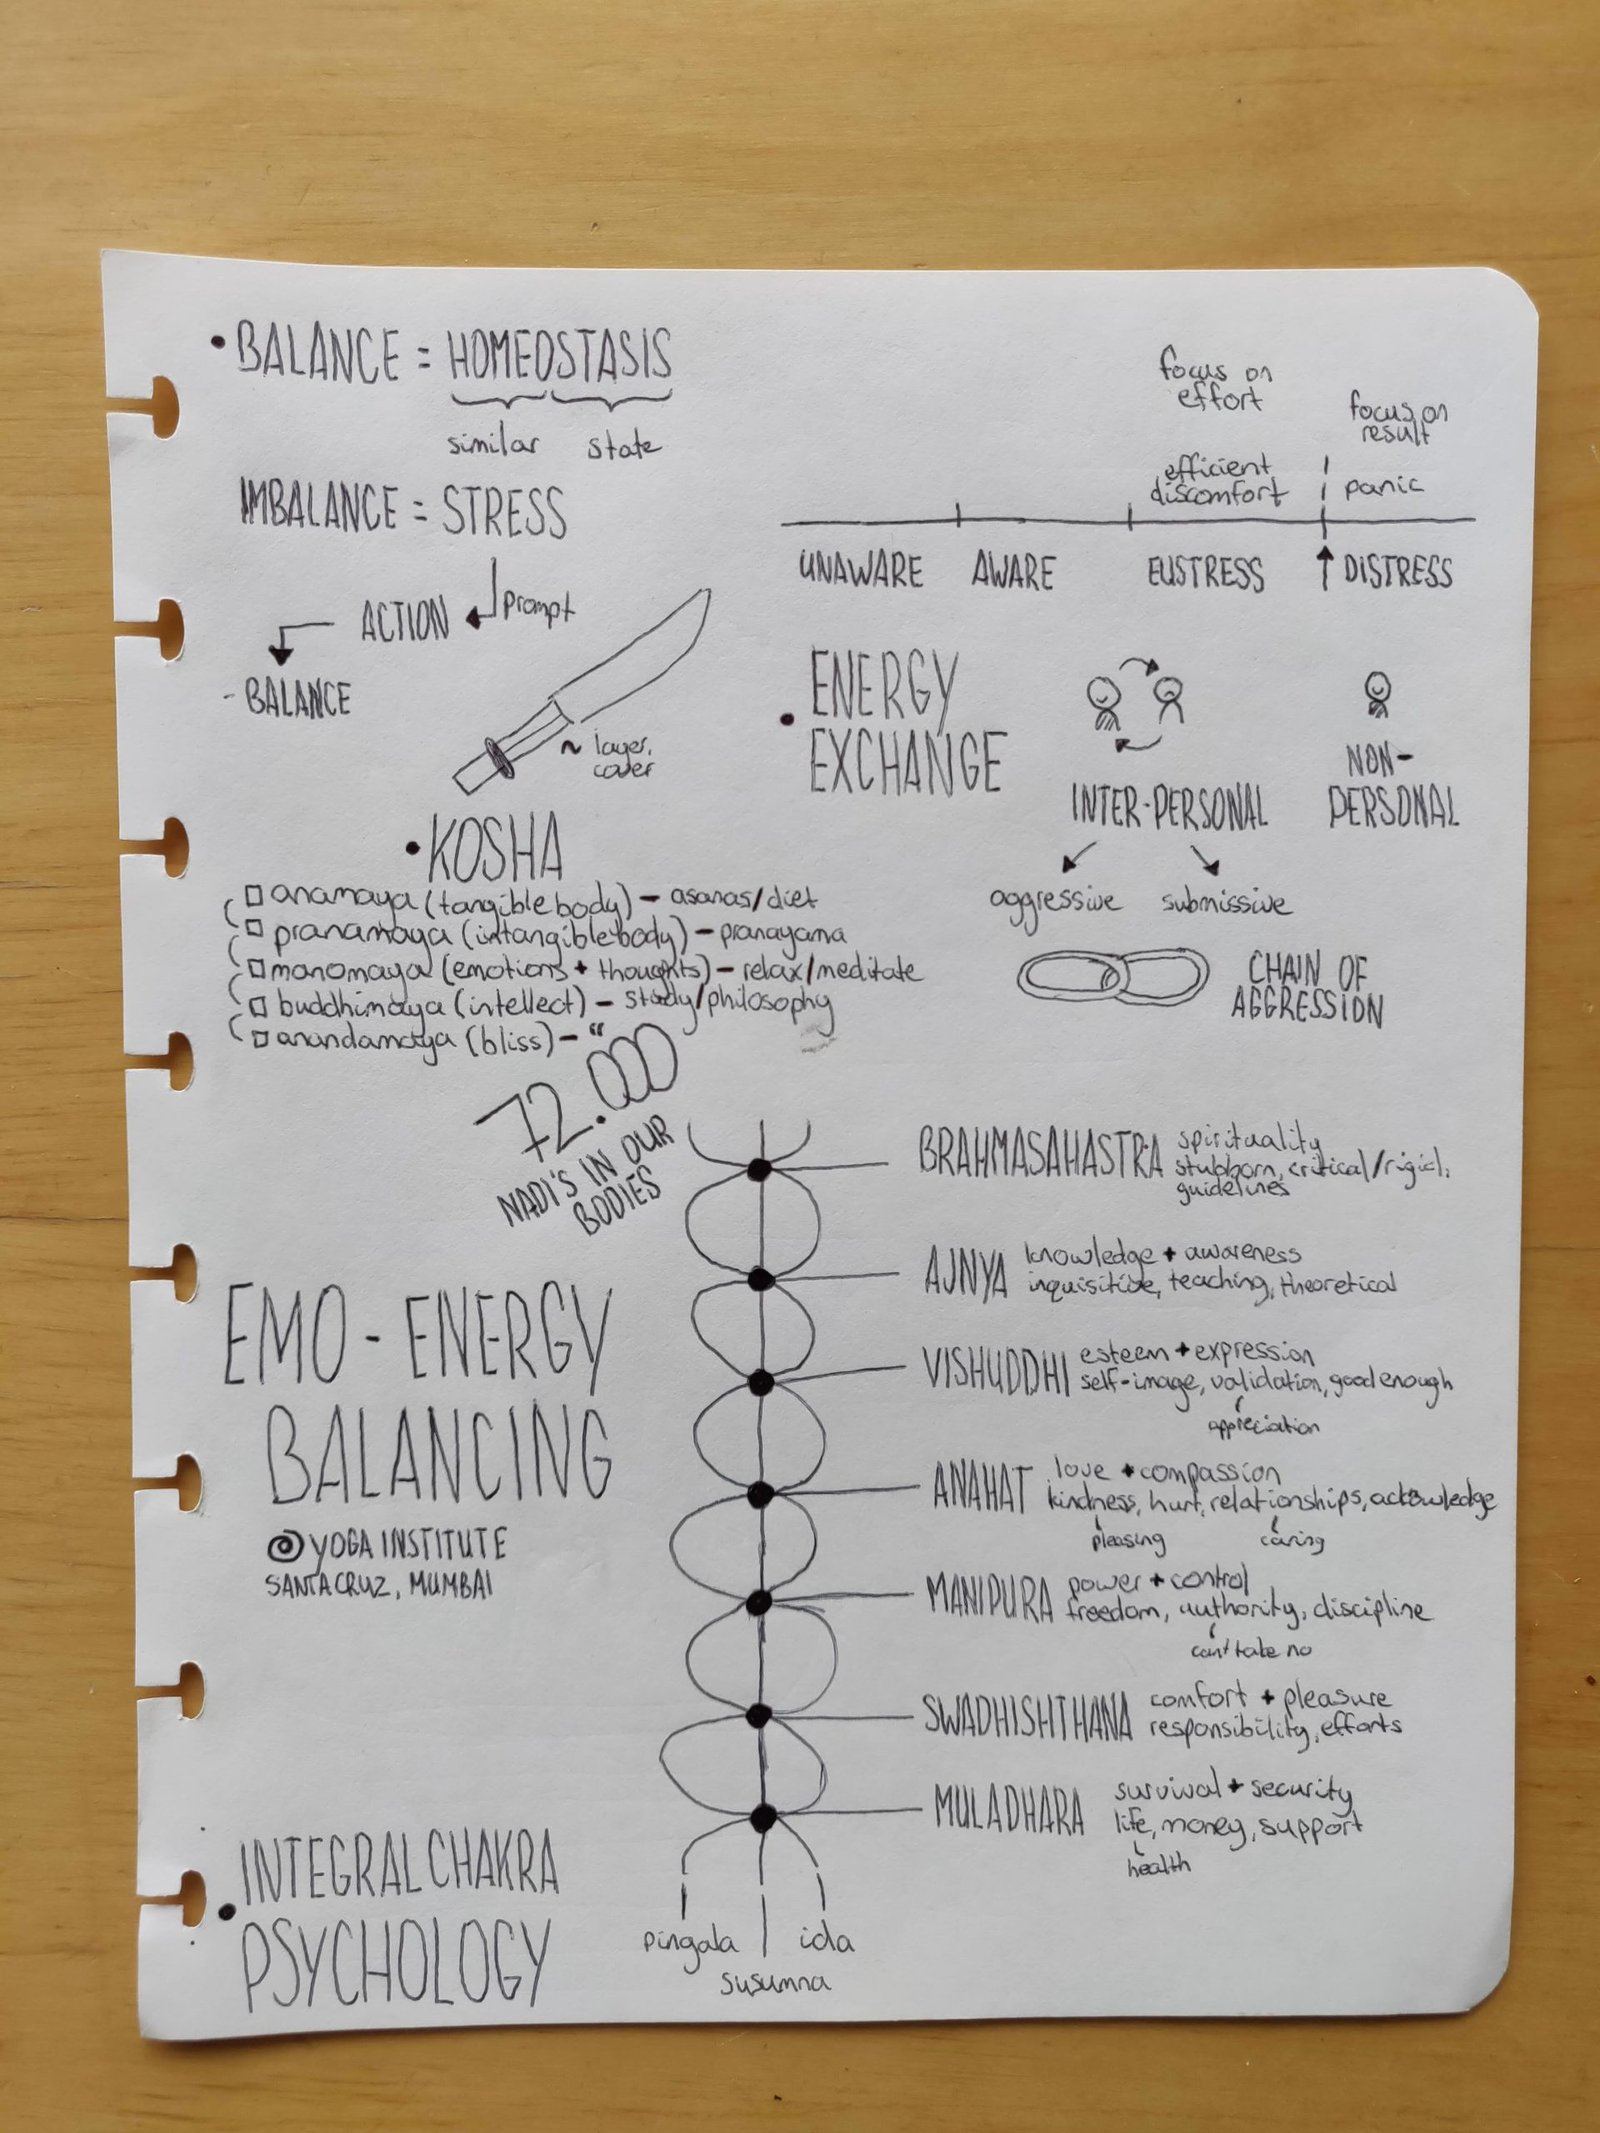 • BALANCE = HOMEOSTASIS
similar state
IMBALANCE = STRESS
prompt
ACTION
- BALANCE
focus on
effort
focus on
result
efficient
discomfort
panic
UNAWARE AWARE EUSTRESS DISTRESS
~ layer,
cover
• KOSHA
□ anamaya (tangible body) – asanas/diet
□ pranamaya (intangible body) – pranayama
□ manomaya (emotions + thoughts) – relax/meditate
□ buddhimaya (intellect) – study/philosophy
□ anandamaya (bliss) – "
• ENERGY
EXCHANGE
INTER-PERSONAL
NON-
PERSONAL
aggressive submissive
CHAIN OF
AGGRESSION
72.000
NADI'S IN OUR
BODIES
EMO-ENERGY
BALANCING
@ YOGA INSTITUTE
SANTACRUZ, MUMBAI
BRAHMASAHASTRA spirituality
stubborn, critical/rigid,
guidelines
AJNYA knowledge + awareness
inquisitive, teaching, theoretical
VISHUDDHI esteem + expression
self-image, validation, good enough
appreciation
ANAHAT love + compassion
kindness, hurt, relationships, acknowledge
pleasing caring
MANIPURA power + control
freedom, authority, discipline
can't take no
SWADHISHTHANA comfort + pleasure
responsibility, efforts
MULADHARA survival + security
life, money, support
health
pingala ida
susumna
• INTEGRAL CHAKRA
PSYCHOLOGY